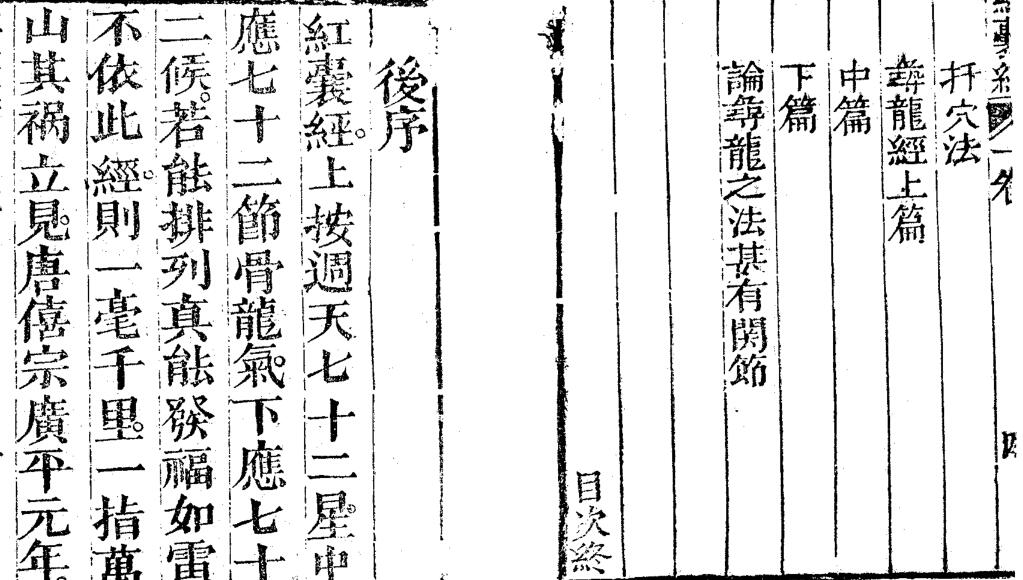 扦穴法
尋龍經上篇
中篇
下篇
論尋龍之法甚有関節
目次終
後序
紅囊經。上按週天七十二星。中
應七十二節骨龍氣。下應七十
二候。若能排列真能發福如雷
不依此經。則一毫千里。一指萬
山其禍立見。唐僖宗廣平元年。